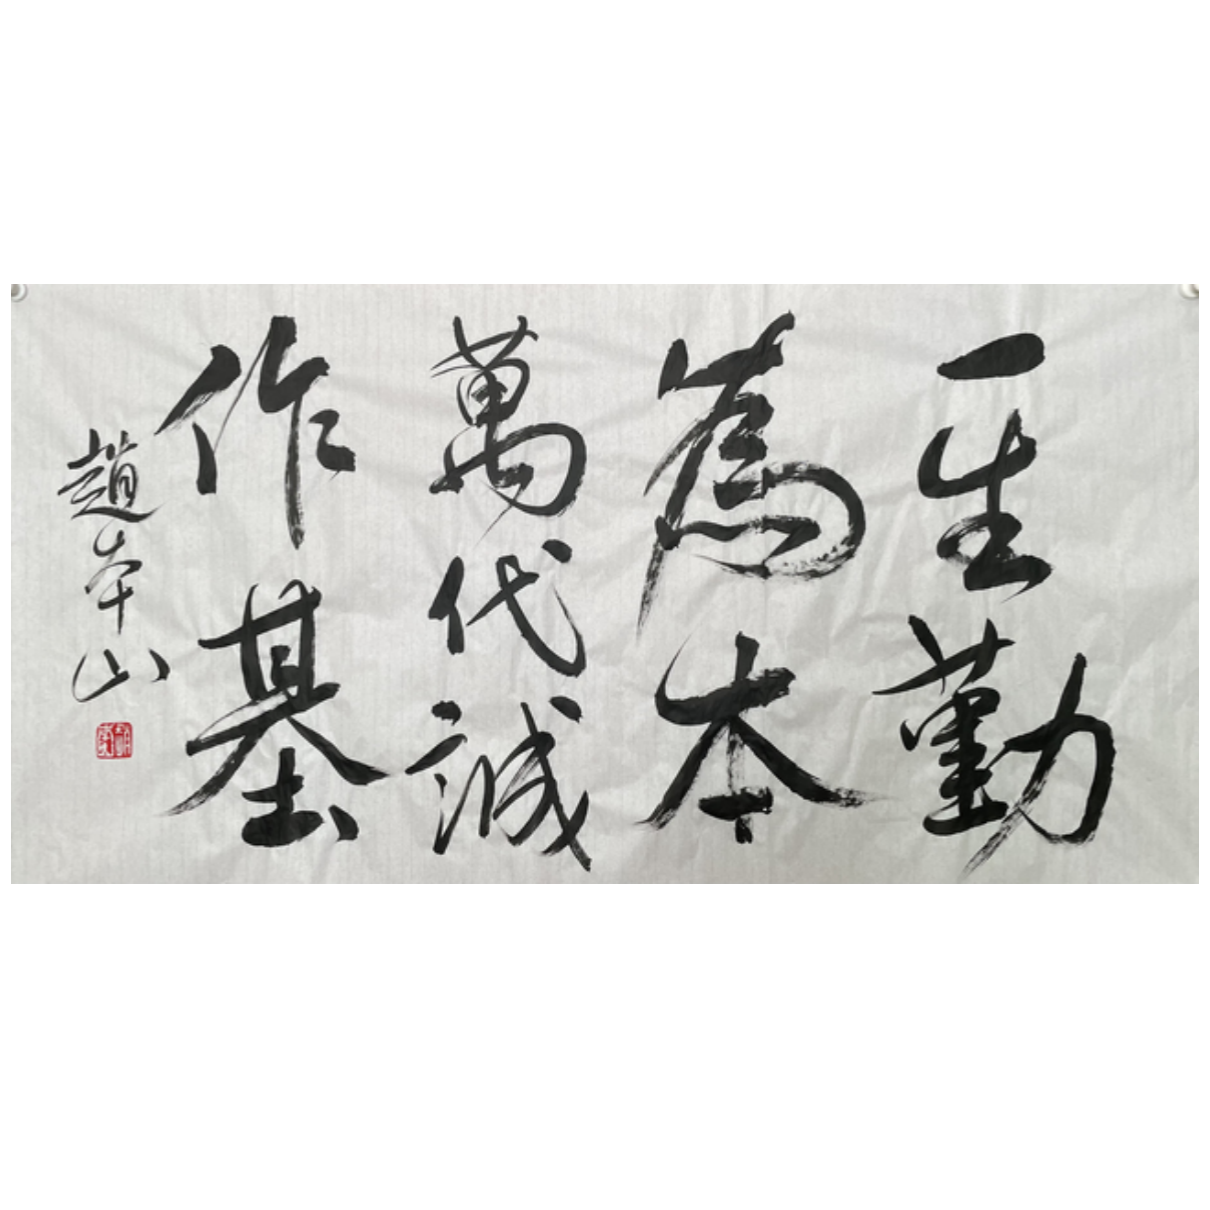 一生勤
為本
萬代誠
作基
趙本山